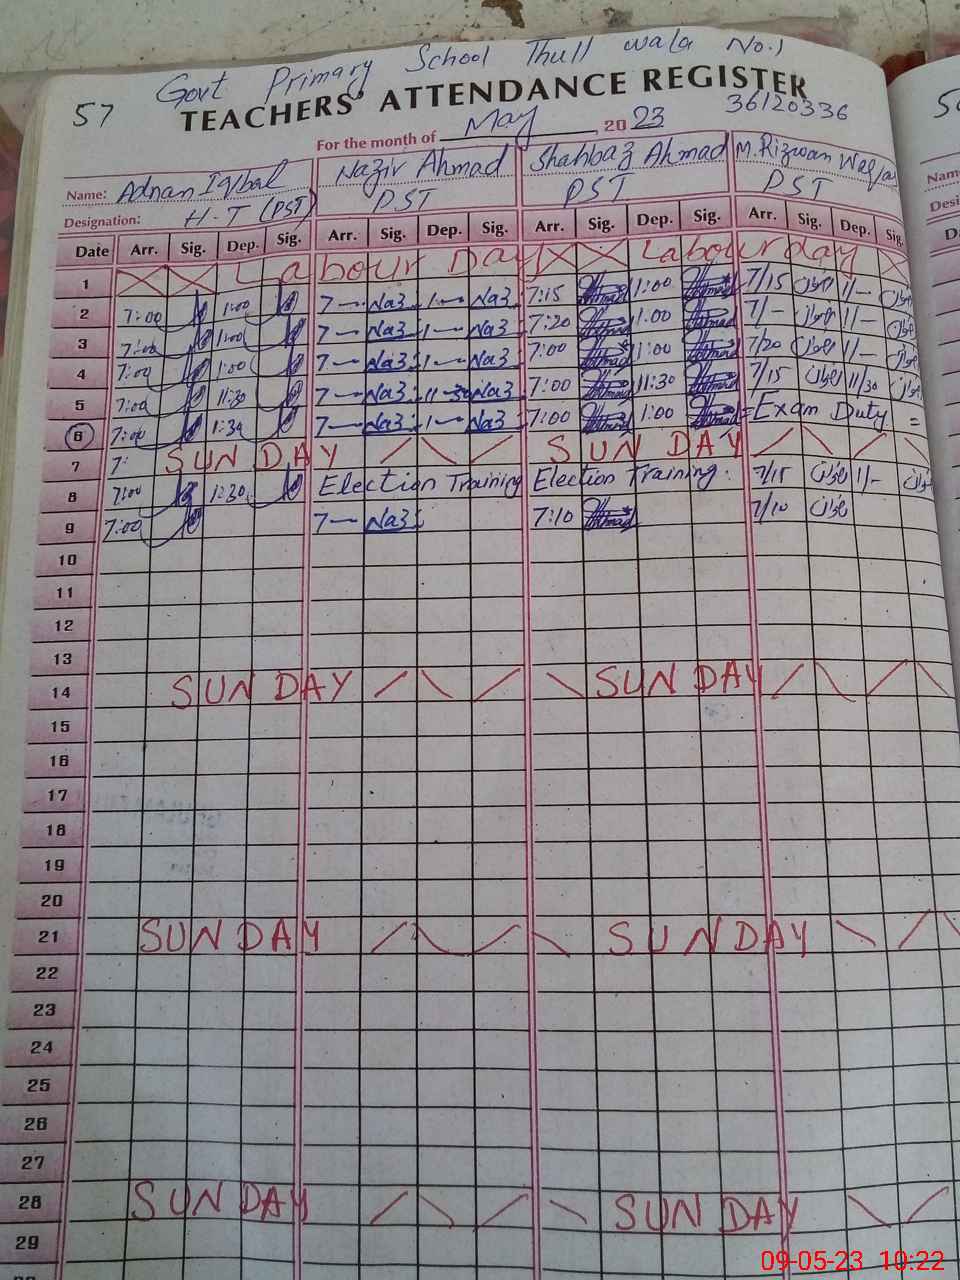 Govt Primary School Thull wala No.1
57 TEACHERS' ATTENDANCE REGISTER
For the month of May, 2023 36120336
Name: Adnan Iqbal Nazir Ahmad Shahbaz Ahmad M.Rizwan
Designation: H-T (PST) PST PST PST
Date Arr. Sig. Dep. Sig. Arr. Sig. Dep. Sig. Arr. Sig. Dep. Sig. Arr. Sig. Dep. Sig.
1 Labour Day Labour day
2 7:00 1:00 7 Na3 1 Na3 7:15 Ahmad 1:00 Ahmad 7/15 1/-
3 7:00 1:00 7 Na3 1 Na3 7:20 Ahmad 1:00 Ahmad 7/- 1/-
4 7:00 1:00 7 Na3 1 Na3 7:00 Ahmad 1:00 Ahmad 7/20 1/-
5 7:00 11:30 7 Na3 11-30 Na3 7:00 Ahmad 11:30 Ahmad 7/15 11/30
6 7:00 1:30 7 Na3 1 Na3 7:00 Ahmad 1:00 Ahmad = Exam Duty =
7 7: SUNDAY SUNDAY
8 7:00 1:30 Election Training Election Training. 7/15 1/-
9 7:00 7 Na3 7:10 Ahmad 7/10
10
11
12
13
14 SUNDAY SUNDAY
15
16
17
18
19
20
21 SUNDAY SUNDAY
22
23
24
25
26
27
28 SUNDAY SUNDAY
29
09-05-23 10:22